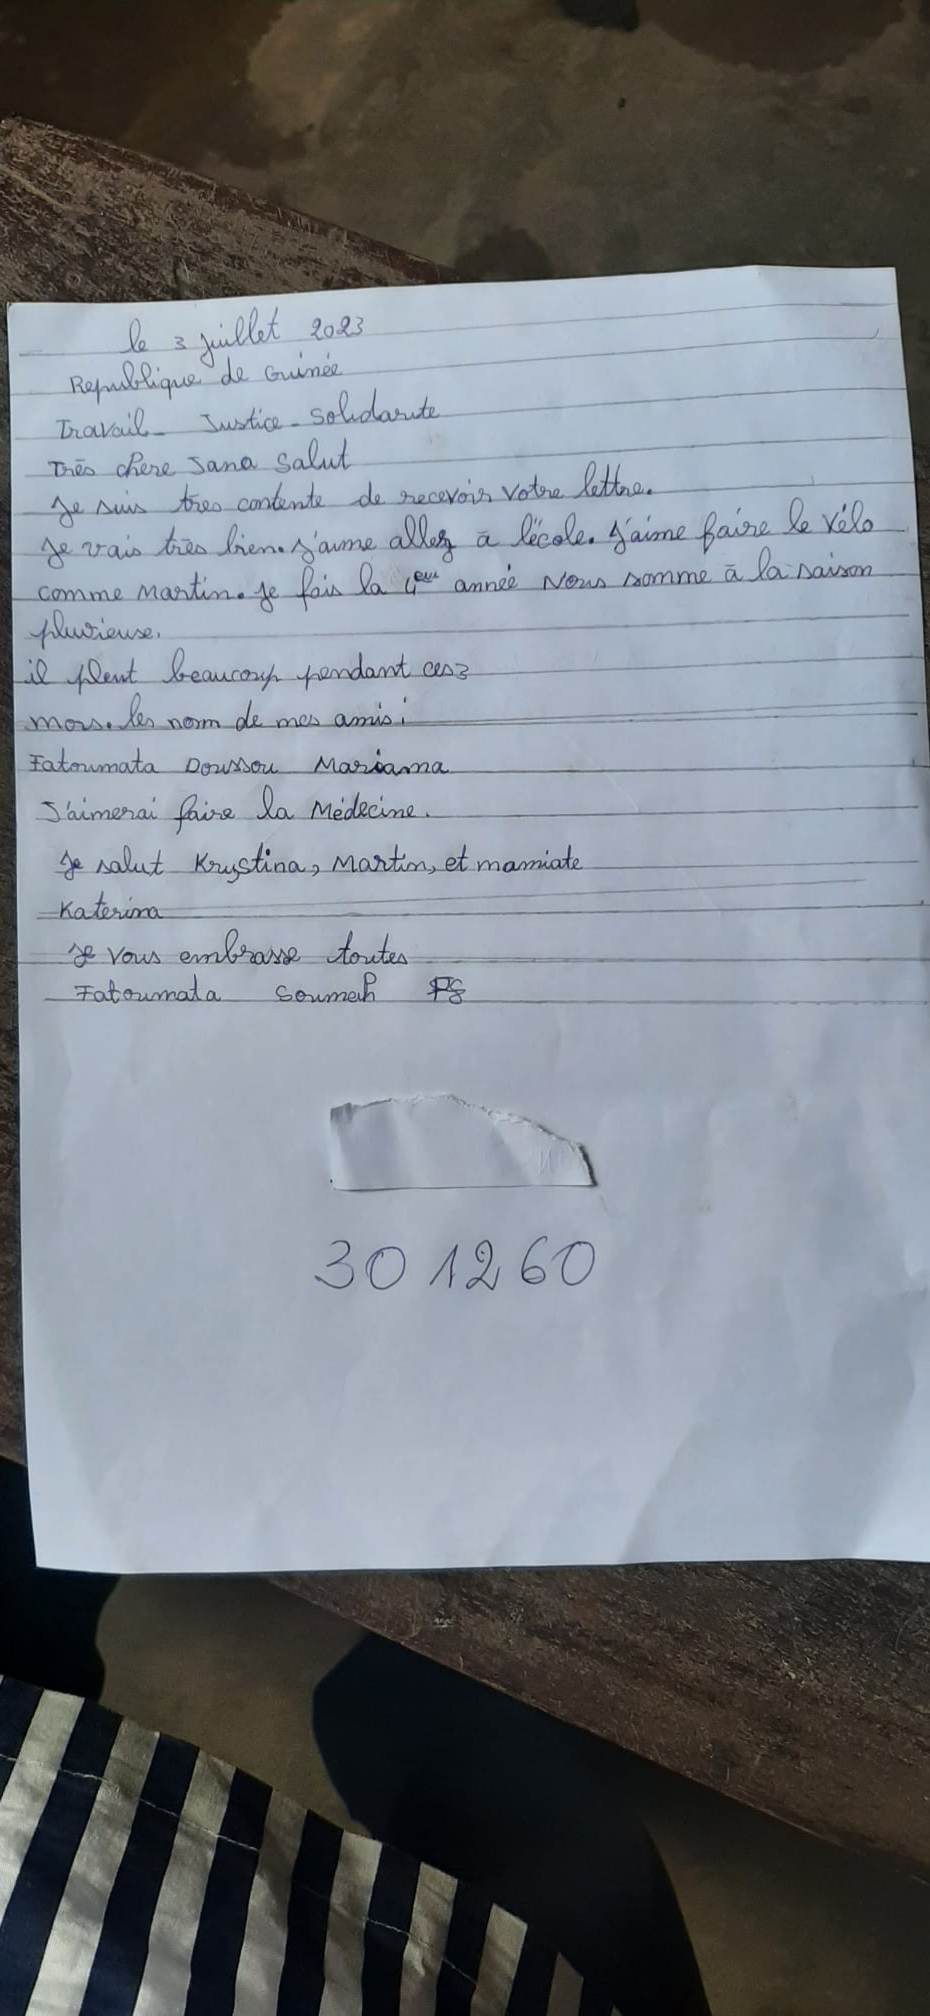 le 3 juillet 2023
Republique de Guinée
Travail - Justice - Solidarite
Très chere Jana Salut
Je suis tres contente de recevoir votre lettre.
Je vais très bien. J'aime allez à l'école. J'aime faire le vélo
comme Martin. Je fais la 4eme année Nous somme à la saison
pluvieuse.
il pleut beaucoup pendant ces 3
mois. les nom de mes amis :
Fatoumata Doussou Mariama
J'aimerai faire la Médecine.
Je salut Krystina, Martin, et mamiate
Katerina
Je vous embrasse toutes
Fatoumata Soumah FS
301260